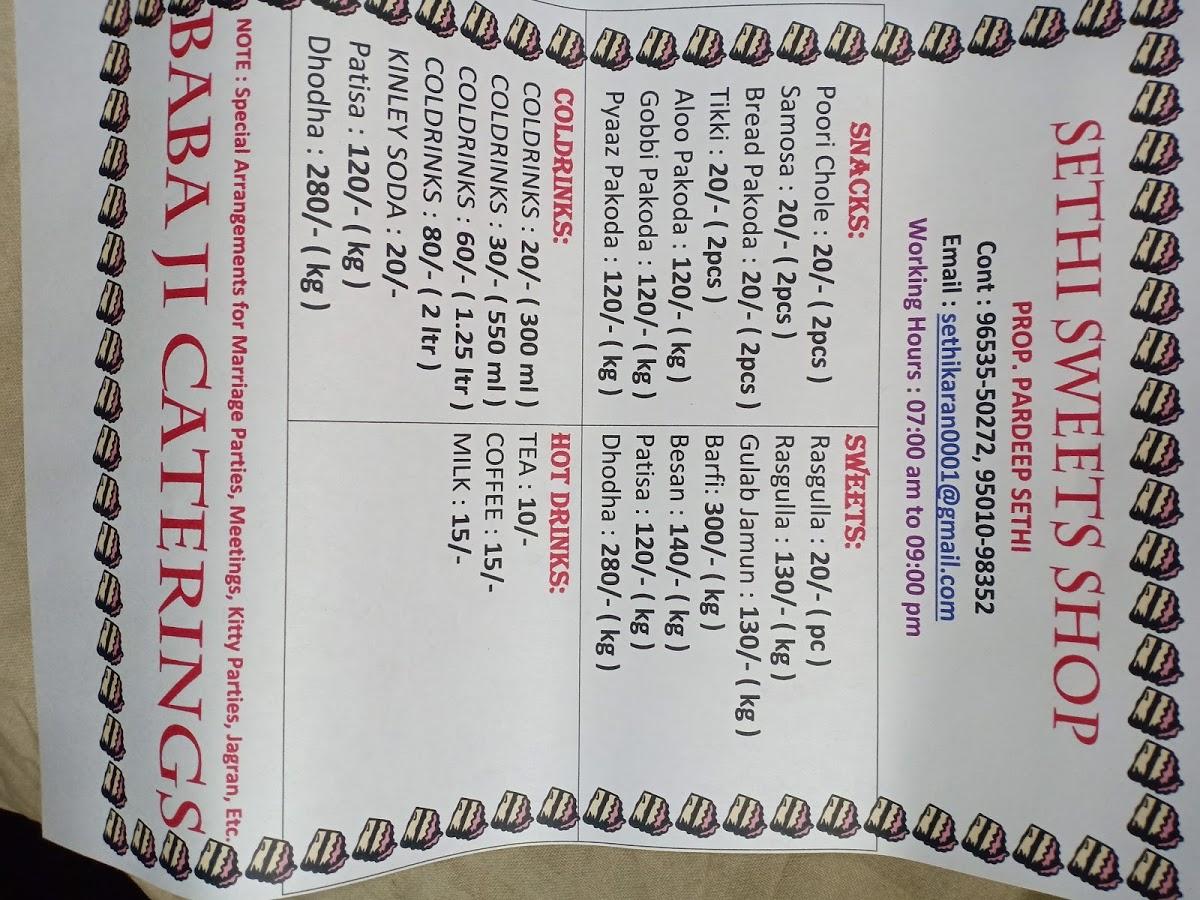 SETHI SWEETS SHOP
PROP. PARDEEP SETHI
Cont : 96535-50272, 95010-98352
Email : sethikaran0001@gmail.com
Working Hours : 07:00 am to 09:00 pm
SNACKS:
Poori Chole : 20/- ( 2pcs )
Samosa : 20/- ( 2pcs )
Bread Pakoda : 20/- ( 2pcs )
Tikki : 20/- ( 2pcs )
Aloo Pakoda : 120/- ( kg )
Gobbi Pakoda : 120/- ( kg )
Pyaaz Pakoda : 120/- ( kg )
SWEETS:
Rasgulla : 20/- ( pc )
Rasgulla : 130/- ( kg )
Gulab Jamun : 130/- ( kg )
Barfi: 300/- ( kg )
Besan : 140/- ( kg )
Patisa : 120/- ( kg )
Dhodha : 280/- ( kg )
COLDRINKS:
COLDRINKS : 20/- ( 300 ml )
COLDRINKS : 30/- ( 550 ml )
COLDRINKS : 60/- ( 1.25 ltr )
COLDRINKS : 80/- ( 2 ltr )
KINLEY SODA : 20/-
Patisa : 120/- ( kg )
Dhodha : 280/- ( kg )
HOT DRINKS:
TEA : 10/-
COFFEE : 15/-
MILK : 15/-
NOTE : Special Arrangements for Marriage Parties, Meetings, Kitty Parties, Jagran, Etc.
BABA JI CATERINGS